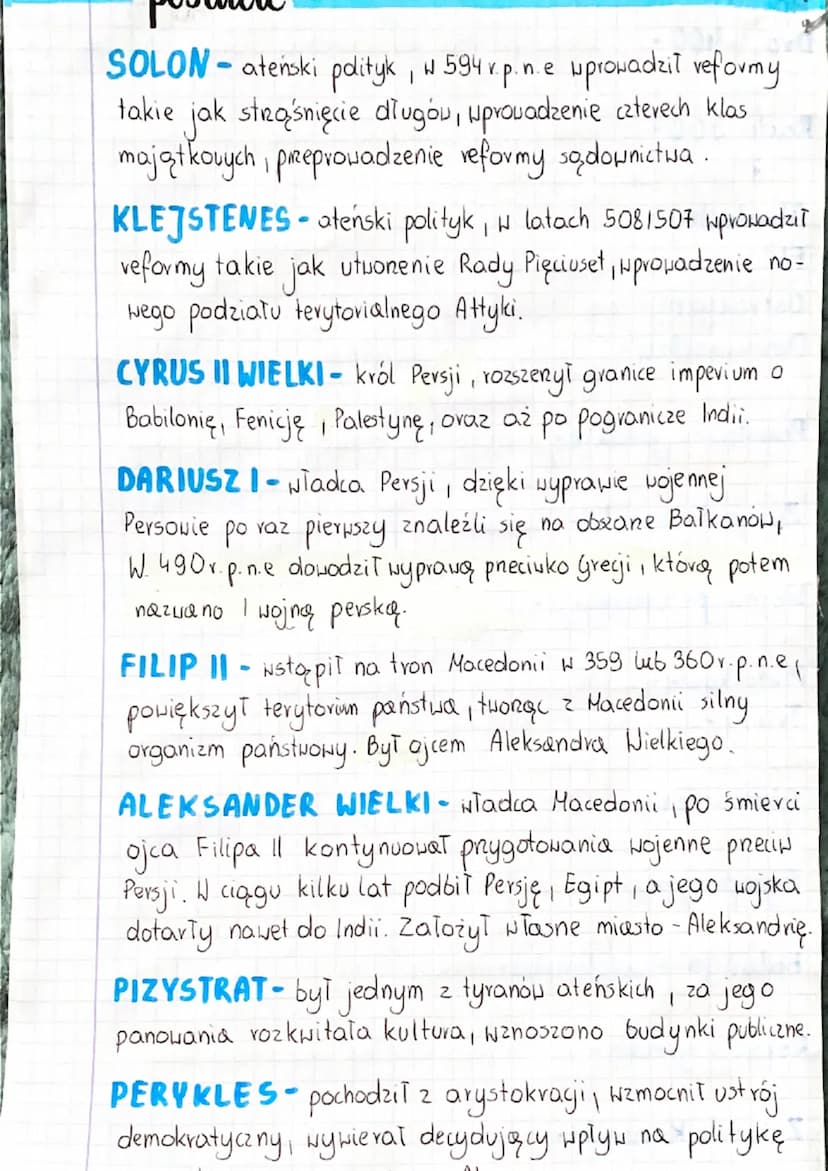 postacie
SOLON - ateński polityk, w 594 r.p.n.e wprowadził reformy
takie jak strząśnięcie długów, wprowadzenie czterech klas
majątkowych, przeprowadzenie reformy sądownictwa.
KLEJSTENES - ateński polityk, w latach 508/507 wprowadził
reformy takie jak utworzenie Rady Pięciuset, wprowadzenie no-
wego podziału terytorialnego Attyki.
CYRUS II WIELKI - król Persji, rozszerzył granice imperium o
Babilonię, Fenicję, Palestynę, oraz aż po pogranicze Indii.
DARIUSZ I - władca Persji, dzięki wyprawie wojennej
Persowie po raz pierwszy znaleźli się na obszarze Bałkanów,
W 490 r.p.n.e dowodził wyprawą przeciwko Grecji, którą potem
nazwano I wojną perską.
FILIP II - wstąpił na tron Macedonii w 359 lub 360 r.p.n.e,
powiększył terytorium państwa, tworząc z Macedonii silny
organizm państwowy. Był ojcem Aleksandra Wielkiego.
ALEKSANDER WIELKI - władca Macedonii, po śmierci
ojca Filipa II kontynuował przygotowania wojenne przeciw
Persji. W ciągu kilku lat podbił Persję, Egipt, a jego wojska
dotarły nawet do Indii. Założył własne miasto - Aleksandrię.
PIZYSTRAT - był jednym z tyranów ateńskich, za jego
panowania rozkwitała kultura, wznoszono budynki publiczne.
PERYKLES - pochodził z arystokracji, wzmocnił ustrój
demokratyczny, wywierał decydujący wpływ na politykę